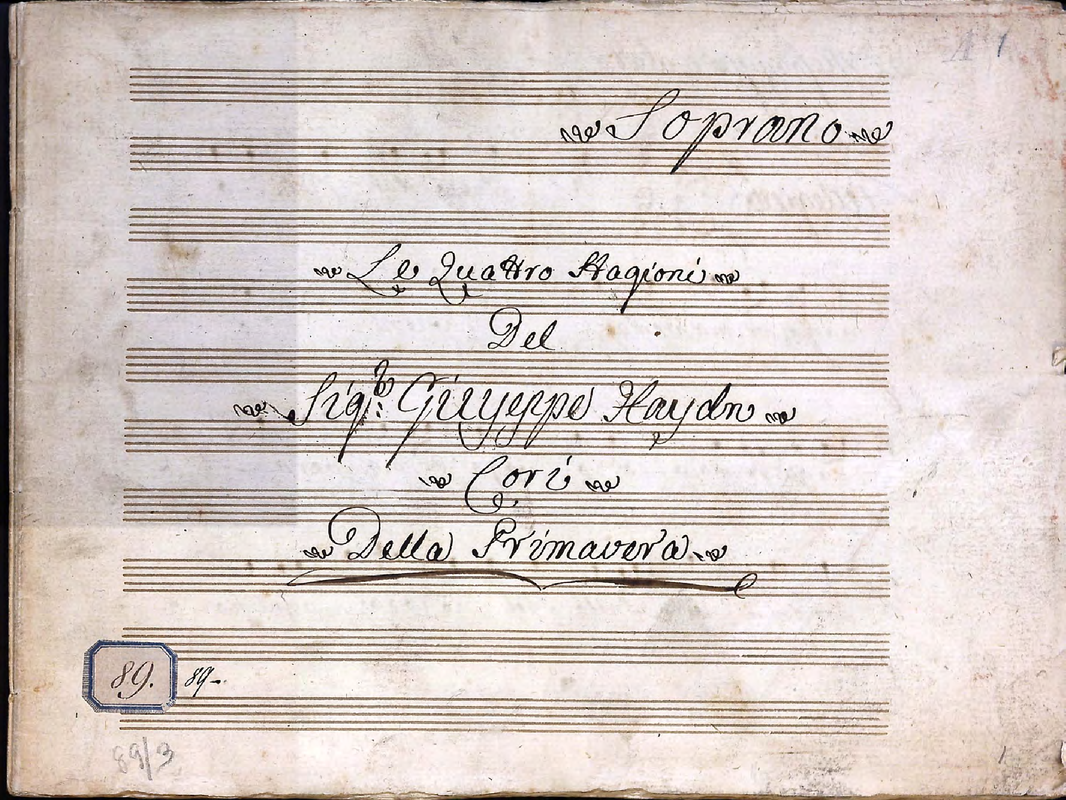 Soprano
Le Quattro Stagioni
Del
Sigr: Giuseppe Haydn
Cori
Della Primavera
89. 89-
89/3